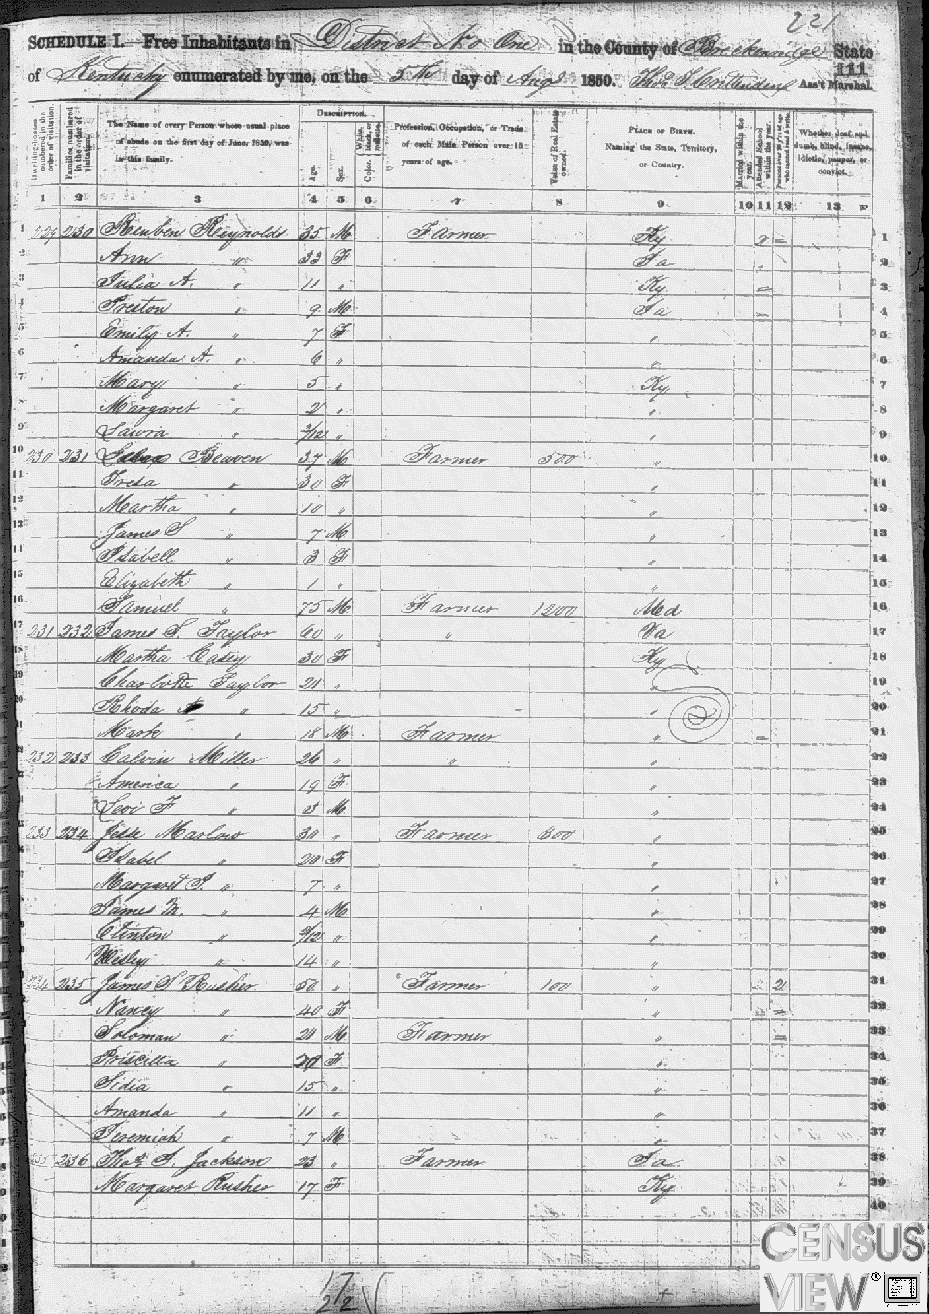 221
SCHEDULE I.—Free Inhabitants in District No One in the County of Breckenridge State
of Kentucky enumerated by me, on the 5th day of Augt 1850. Thos Crittenden Ass't Marshal.
111
Dwelling-houses numbered in the order of visitation.
Families numbered in the order of visitation.
The Name of every Person whose usual place of abode on the first day of June, 1850, was in this family.
DESCRIPTION.
Age.
Sex.
Color. White, black, or mulatto.
Profession, Occupation, or Trade of each Male Person over 15 years of age.
Value of Real Estate owned.
PLACE OF BIRTH. Naming the State, Territory, or Country.
Married within the year.
Attended School within the year.
Persons over 20 y'rs of age who cannot read & write.
Whether deaf and dumb, blind, insane, idiotic, pauper, or convict.
1 2 3 4 5 6 7 8 9 10 11 12 13
1 229 230 Reuben Reynolds 35 M Farmer Ky 1
2 Ann " 33 F Ia 2
3 Julia A. " 11 " Ky 3
4 Preston " 9 M Ia 4
5 Emily A. " 7 F " 5
6 Amanda A. " 6 " " 6
7 Mary " 5 " Ky 7
8 Margaret " 2 " " 8
9 Laura " 2/12 " " 9
10 230 231 Beaven 37 M Farmer 500 " 10
11 Tresa " 30 F " 11
12 Martha " 10 " " 12
13 James S " 7 M " 13
14 Isabell " 3 F " 14
15 Elizabeth " 1 " " 15
16 Samuel " 75 M Farmer 1200 Md 16
17 231 232 James S. Taylor 60 " " Va 17
18 Martha Casey 30 F Ky 18
19 Charlotte Taylor 21 " " 19
20 Rhoda " 15 " " 20
21 Mark " 18 M Farmer " 21
22 232 233 Calvin Miller 26 " " " 22
23 America " 19 F " 23
24 Levi F " M " 24
25 233 234 Marlow 30 " Farmer 600 " 25
26 Isabel " F " 26
27 Margaret " 7 " " 27
28 James M. " 4 M " 28
29 Clinton " " " 29
30 Wesley " 14 " " 30
31 234 235 James S Rusher 50 " Farmer 100 " 31
32 Nancy " 40 F " 32
33 Soloman " 21 M Farmer " 33
34 Priscilla " F " 34
35 Sidia " 15 " " 35
36 Amanda " 11 " " 36
37 Jeremiah " 7 M " 37
38 235 236 Thos. S. Jackson 23 " Farmer Ia 38
39 Margaret Rusher 17 F Ky 39
40
CENSUS
VIEW®